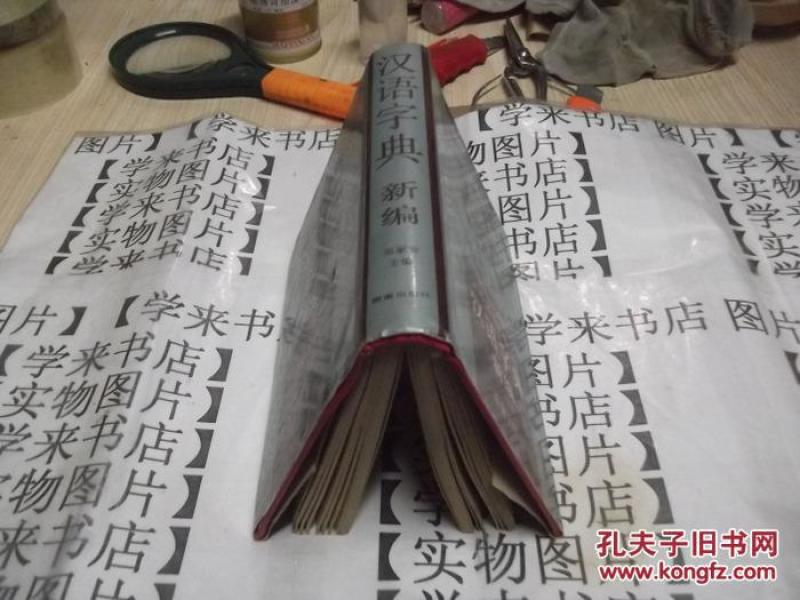 汉语字典
新编
主编
【学来书店
图片】
【学来书店
【实物图片】
【学来书店】
【实物图片】
【学来书店
【学来书店
图片】
书店】
图片】
书店】
图片】
【学来书店】
【实物图片】
【学来书店】
【实物图片】
图片】
【学来书店 图片】
【学来书店】
【实物图片】
【学来书店】
实物图片】
学来书店】
物图片】
来书店】
图片】
图片】
书店】
图片】
书店】
【实物图片】
孔夫子旧书网
www.kongfz.com